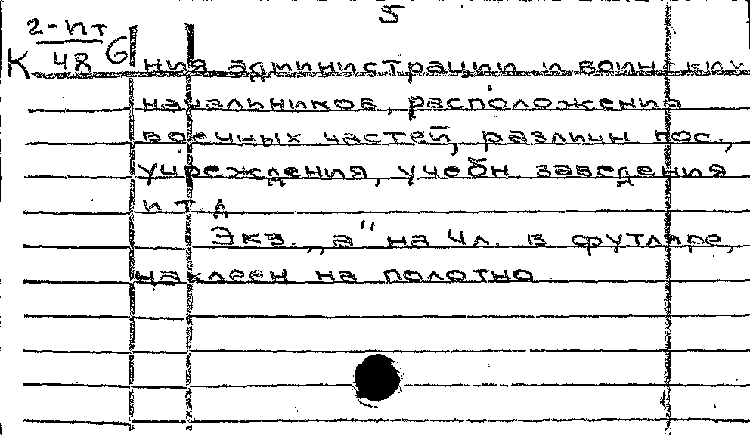 5
2-Пт
К 48 G
ния администрации и воинских
начальников, расположения
военных частей, различн гос.,
учреждения, учебн. заведения
и т д
Экз. „а" на 4л. в футляре,
наклеен на полотно